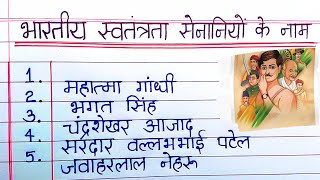 भारतीय स्वतंत्रता सेनानियों के नाम
1. महात्मा गांधी
2. भगत सिंह
3. चंद्रशेखर आजाद
4. सरदार वल्लभभाई पटेल
5. जवाहरलाल नेहरू